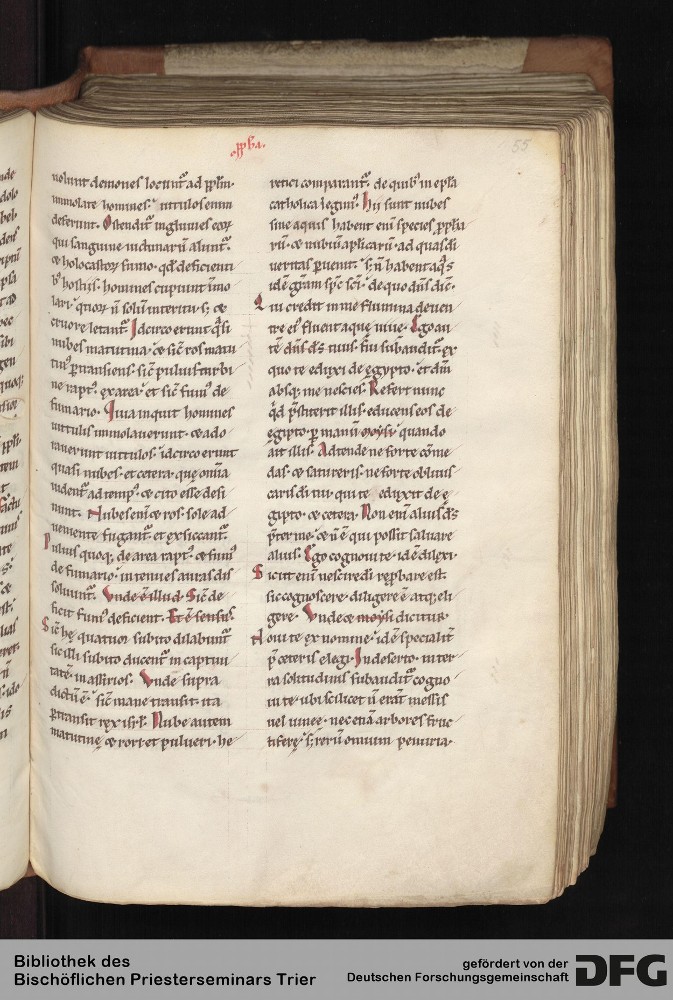 55
uolunt demones locunt᷑ ad ppl̅m·
immolare homines· uitulos enim
deferunt· Ostendit᷑ ingluuies eoꝝ
qui sanguine uictimarū alunt᷑·
& holocastoꝝ fumo· qđ deficienti
bꝰ hostiis· homines cupiunt īmo
lari· quoꝝ n̄ solū interitu· s; &
cruore letant᷑· Idcirco erunt q̄si
nubes matutina· & sic̄ ros matu
tinꝰ p̱transiens· sic̄ puluis turbi
ne raptꝰ ex area· et sic̄ fumꝰ de
fumario· Quia inquit homines
uitulis immolauerunt· & ado
rauerunt uitulos· idcirco erunt
quasi nubes· et cetera· que om̄ia
uident᷑ ad tempꝰ· & cito esse desi
nunt· Nubes eni̅ & ros· sole ad
ueniente fugant᷑· et exsiccant᷑·
Puluis quoq; de area raptꝰ· & fumꝰ
de fumario· in tenues auras dis
soluunt᷑· Vnde ē illud· Sic̄ de
ficit fumꝰ deficient· Et ē sensus·
Sic̄ hę quatuor subito dilabunt᷑
sic illi subito ducent᷑ in captiui
tatē in assirios· Vnde supra
dictū ē· sic̄ mane transit· ita
p̱transiit rex isr̄l· Nube autem
matutine & rori et pulueri· he
retici comparant᷑· de quibꝰ in ep̄la
catholica legimꝰ· Hii sunt nubes
sine aquis· habent eni̅ species
ueritas p̱uenit· s; n̄ habent aq̄s
idē gr̄am sp̄c sc̄i· de quo dn̄s dic̄·
Qui credit in me flumina de uen
tre eiꝰ fluent aque uiue· Ego au
tē dn̄s d̄s tuus· fui subaudit᷑· ex
quo te eduxi de egypto· et dm̄
absq; me nescies· Refert nunc
qđ p̄stiterit illis· educens eos de
egipto· p̱ manū moysi· quando
ait illis· Adtende ne forte come
das· & satureris· ne forte obliuis
caris dn̄i tui· qui te eduxit de ę
gipto· & cetera· Non eni̅ alius d̄s
p̄ter me· & n̄ ē qui possit saluare
alius· Ego cognoui te· idē dilexi·
Sicut eni̅ nescire dī rep̱bare est·
sic cognoscere· diligere ē atq; eli
gere· Vnde & moysi dicitur·
Noui te ex nomine· idē specialit᷑
p̄ ceteris elegi· In deserto· in ter
ra solitudinis subaudit᷑ cogno
ui te· ubi scilicet n̄ erāt messis
uel uineę· nec etiā arbores fruc
tiferę· s; rerū omium penuria·
Bibliothek des
Bischöflichen Priesterseminars Trier
gefördert von der
Deutschen Forschungsgemeinschaft
DFG